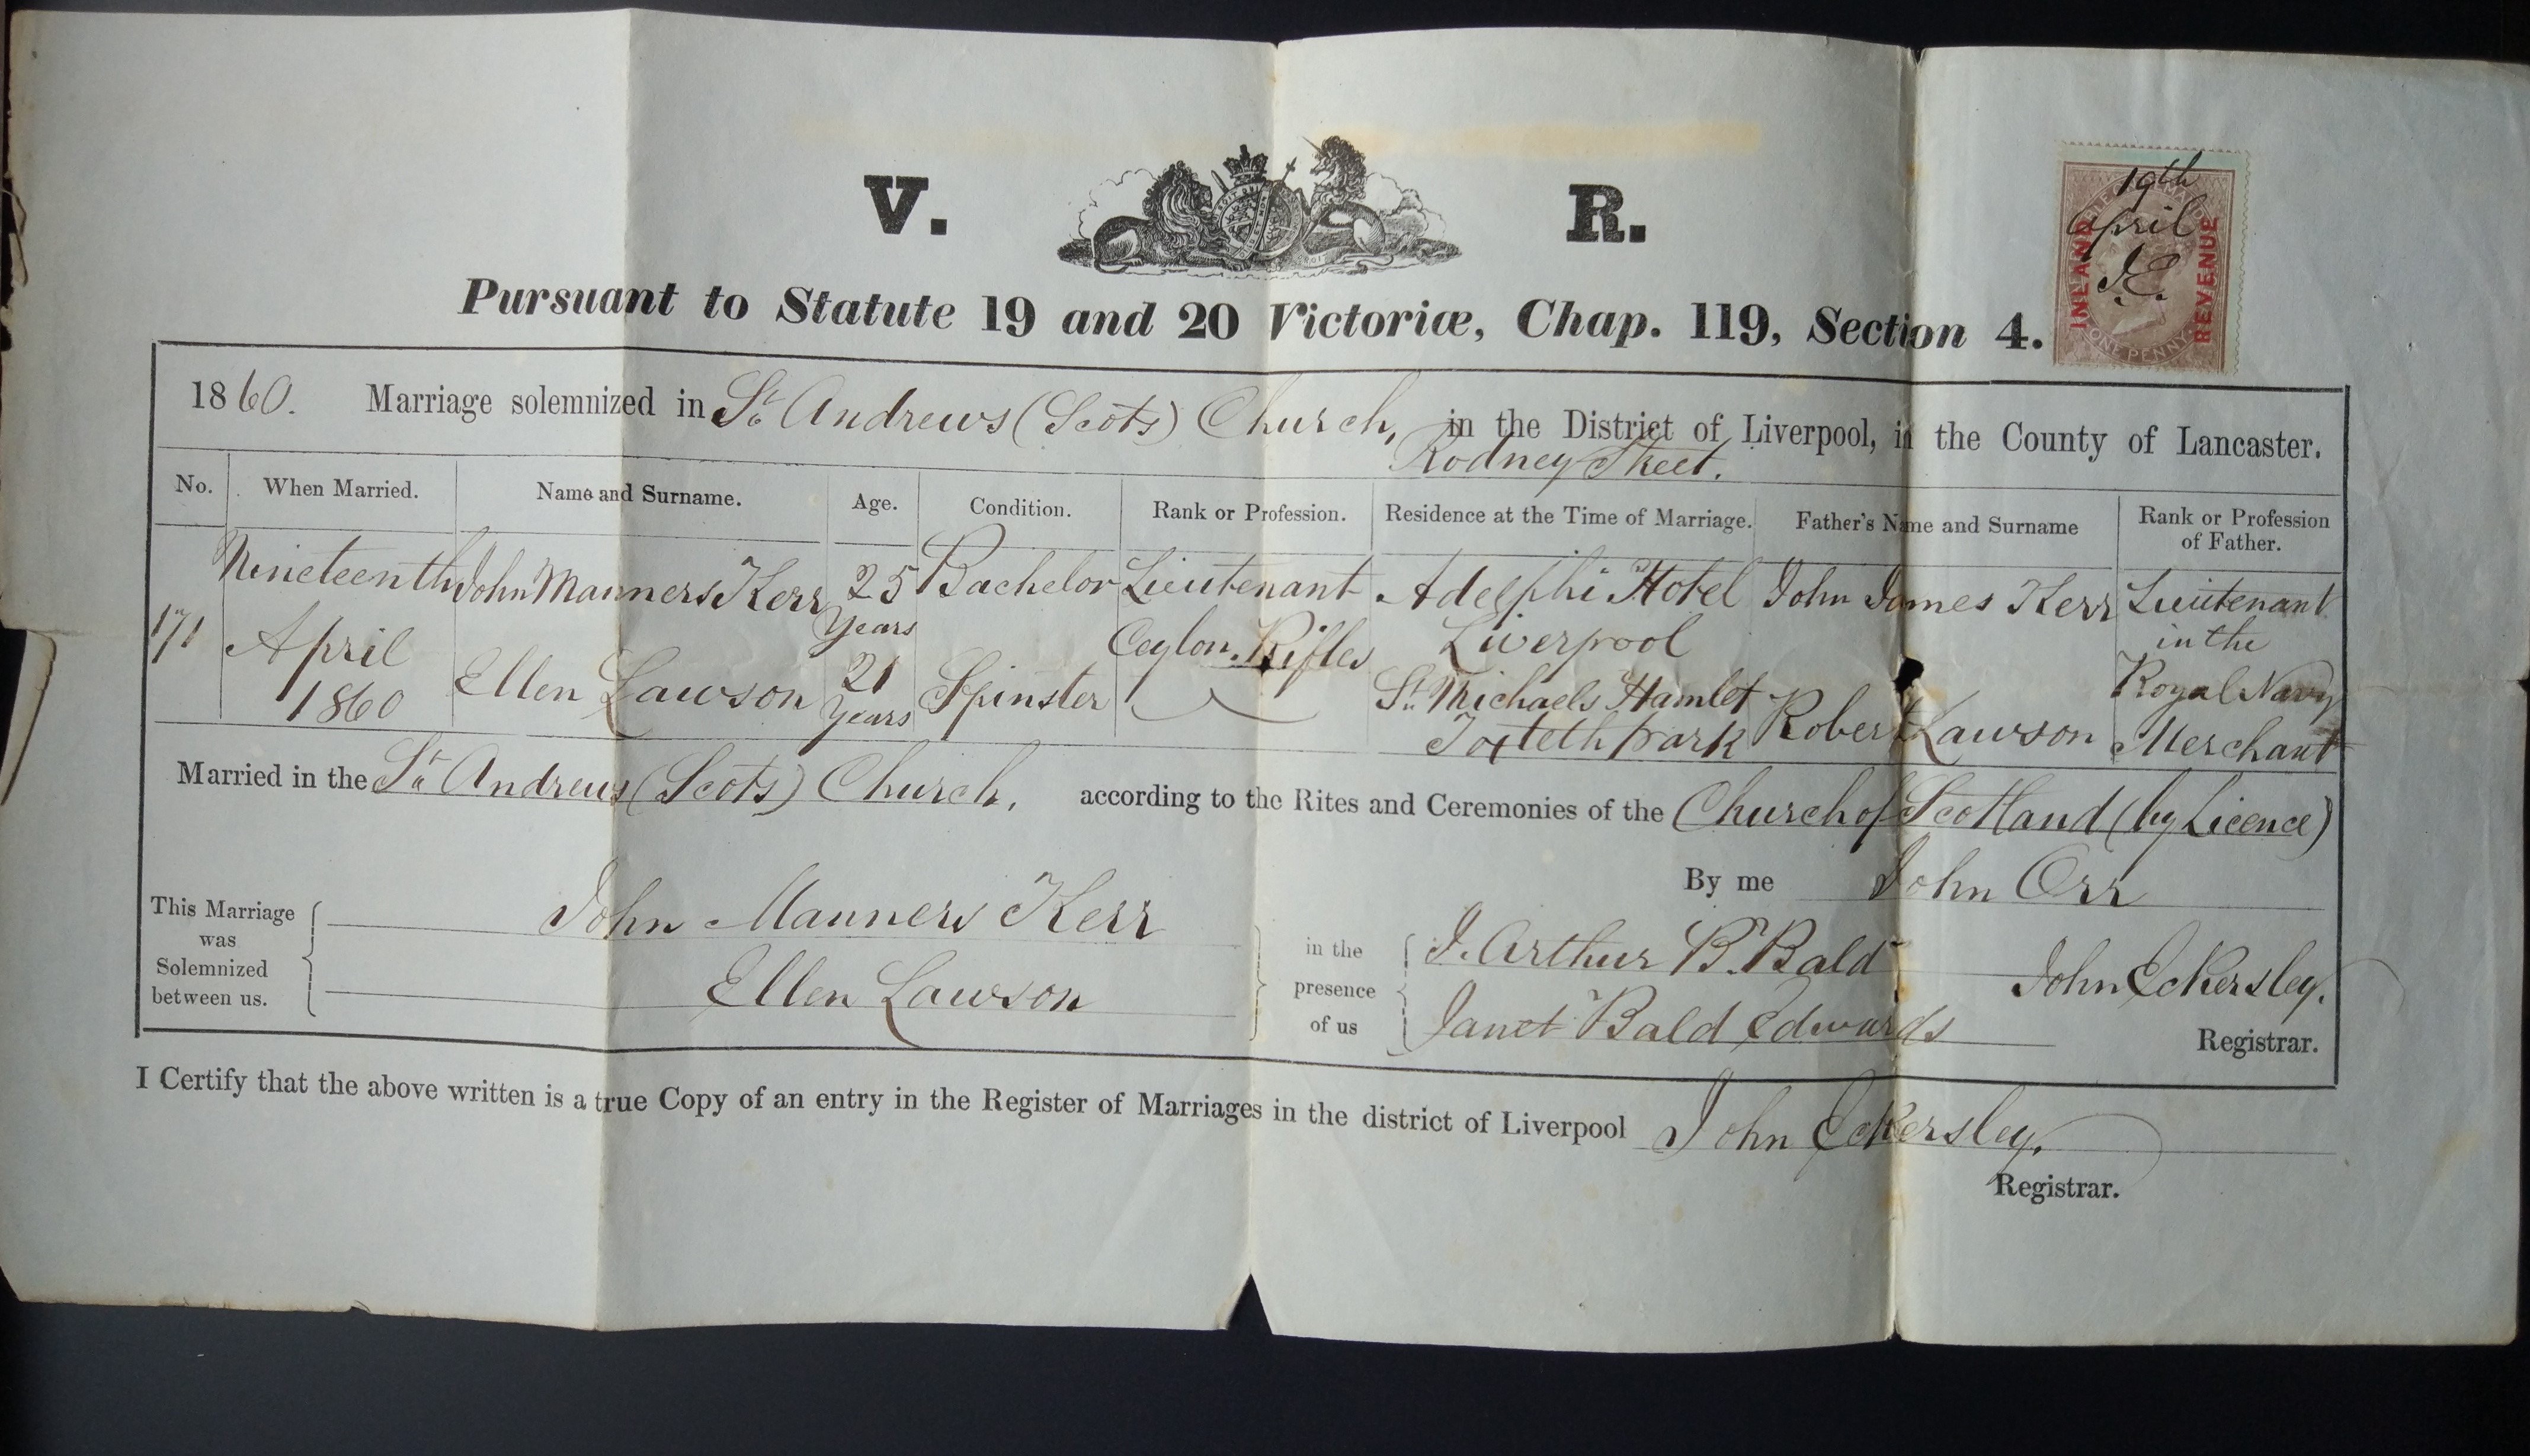 V. R.
Pursuant to Statute 19 and 20 Victoriæ, Chap. 119, Section 4.
INLAND REVENUE
ONE PENNY
19th
April
J.E.
1860. Marriage solemnized in St. Andrews (Scots) Church, in the District of Liverpool, in the County of Lancaster.
Rodney Street.
No. When Married. Name and Surname. Age. Condition. Rank or Profession. Residence at the Time of Marriage. Father's Name and Surname Rank or Profession of Father.
171 Nineteenth April 1860
John Manners Kerr 25 years Bachelor Lieutenant Ceylon Rifles Adelphi Hotel Liverpool John James Kerr Lieutenant in the Royal Navy
Ellen Lawson 21 years Spinster St. Michaels Hamlet Toxteth park Robert Lawson Merchant
Married in the St. Andrews (Scots) Church, according to the Rites and Ceremonies of the Church of Scotland (by Licence)
By me John Orr
This Marriage was Solemnized between us.
John Manners Kerr
Ellen Lawson
in the presence of us
J. Arthur B. Bald
Janet Bald Edwards
John Eckersley.
Registrar.
I Certify that the above written is a true Copy of an entry in the Register of Marriages in the district of Liverpool John Eckersley.
Registrar.